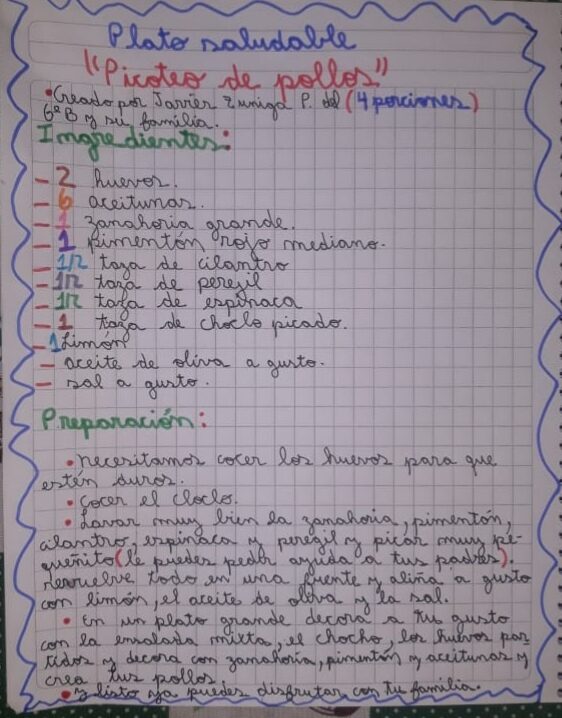 Plato saludable
"Picoteo de pollos"
• Creado por Javier Zuniga P. del (4 porciones)
6º B y su familia.
Ingredientes:
- 2 huevos.
- 6 aceitunas.
- 1 zanahoria grande.
- 1 pimentón rojo mediano.
- 1/2 taza de cilantro
- 1/2 taza de perejil
- 1/2 taza de espinaca
- 1 taza de choclo picado.
- 1 Limón
- aceite de oliva a gusto.
- sal a gusto.
Preparación:
• necesitamos cocer los huevos para que
estén duros.
• Cocer el cloclo.
• Lavar muy bien la zanahoria, pimentón,
cilantro, espinaca y peregil y picar muy pe-
queñito (le puedes pedir ayuda a tus padres).
Rerruelve todo en una fuente y aliña a gusto
con limón, el aceite de oliva y la sal.
• En un plato grande decora a tu gusto
con la ensalada mixta, el chocho, los huevos par
tidos y decora con zanahoria, pimentón y aceitunas y
crea tus pollos.
• Y listo ya puedes disfrutar con tu familia.